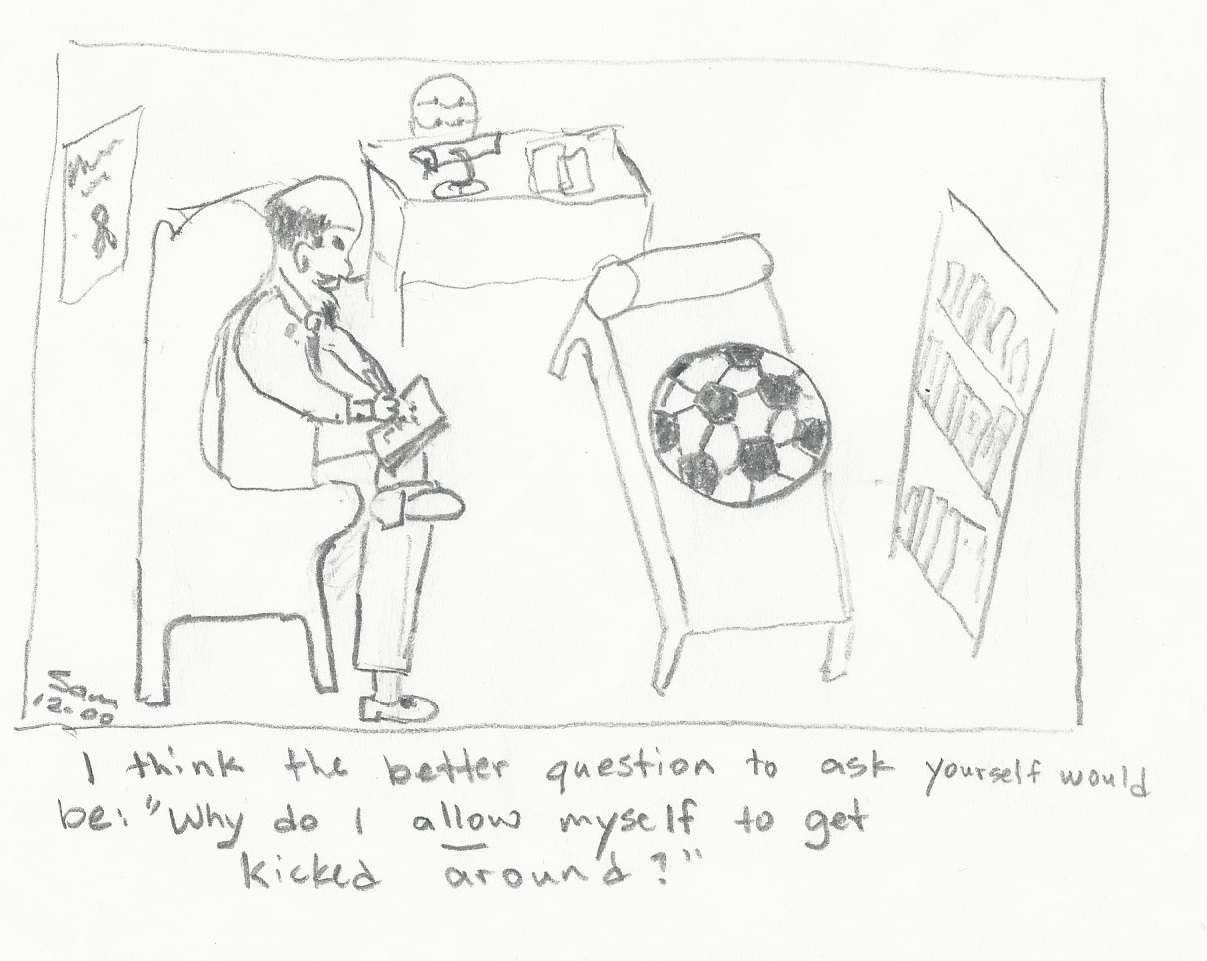 Sam
12.00
I think the better question to ask yourself would
be: "Why do I allow myself to get
kicked around?"